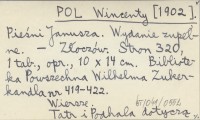 POL Wincenty [1902].
Pieśni Janusza. Wydanie zupeł-
ne. – Złoczów. Stron 320,
1 tabl., opr., 10 x 14 cm. Bibliote-
ka Powszechna Wilhelma Zuker-
kandla nr. 419-422.
Wiersze.
Tatr i Podhala dotyczą